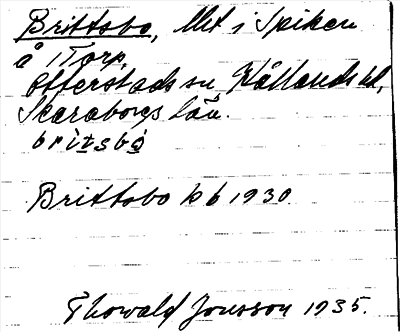 Brittsbo, lht i Spiken
å 1 Torp,
Otterstads sn, Kållands hd,
Skaraborgs län.
britsbo
Brittsbo kb 1930.
Thorvald Jonsson 1935.